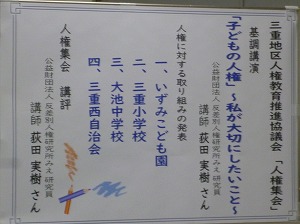 三重地区人権教育推進協議会 「人権集会」
基調講演
「子どもの人権」～私が大切にしたいこと～
公益財団法人 反差別人権研究所みえ 研究員
講師 荻田 実樹 さん
人権に対する取り組みの発表
一、いずみこども園
二、三重小学校
三、大池中学校
四、三重西自治会
人権集会 講評
公益財団法人 反差別人権研究所みえ 研究員
講師 荻田 実樹 さん